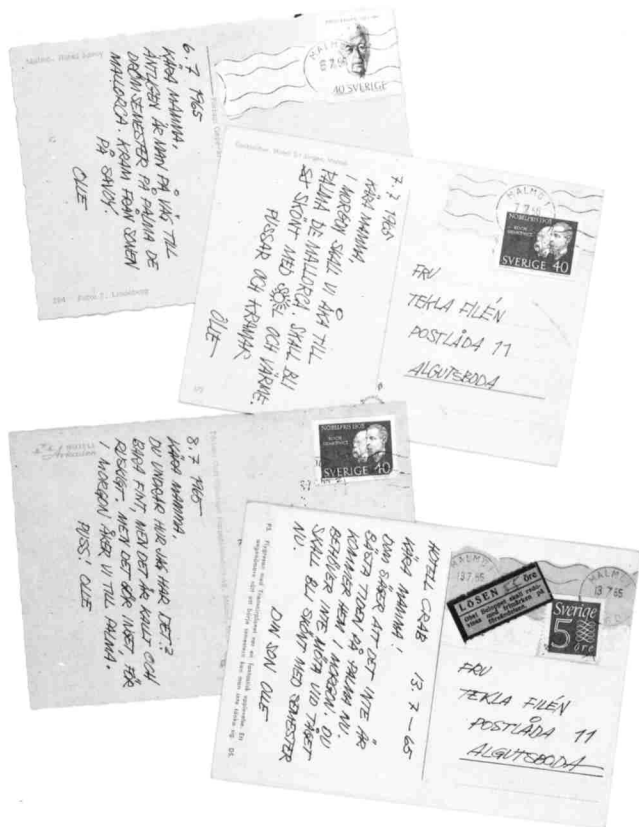 Malmö. Hotel Savoy
6.7 1965
KÄRA MAMMA,
ÄNTLIGEN ÄR MAN PÅ VÄG TILL
DRÖMSEMESTER PÅ PALMA DE
MALLORCA. KRAM FRÅN SONEN
PÅ SAVOY.
OLLE
MALMÖ
6.7.65
40 SVERIGE
7.7 1965
KÄRA MAMMA,
I MORGON SKALL VI ÅKA TILL
PALMA DE MALLORCA. SKALL BLI
SÅ SKÖNT MED SOL OCH VÄRME.
PUSSAR OCH KRAMAR
OLLE
MALMÖ 1
7.7.65
NOBELPRIS 1905
SVERIGE 40
FRU
TEKLA FILÉN
POSTLÅDA 11
ALGUTSBODA
8.7 1965
KÄRA MAMMA.
DU UNDRAR HUR JAG HAR DET?
BARA FINT, MEN DET ÄR KALLT OCH
RUSKIGT. MEN DET GÖR INGET, FÖR
I MORGON ÅKER VI TILL PALMA.
PUSS! OLLE
NOBELPRIS 1905
SVERIGE 40
HOTELL CRAB 13.7-65
KÄRA MAMMA!
DOM SÄGER ATT DET INTE ÄR
BÄSTA TIDEN PÅ PALMA NU.
KOMMER HEM I MORGON. DU
BEHÖVER INTE MÖTA VID TÅGET
SKALL BLI SKÖNT MED SEMESTER
NU.
DIN SON OLLE
MALMÖ
13.7.65
LÖSEN öre
MALMÖ
13.7.65
Sverige
5
öre
FRU
TEKLA FILÉN
POSTLÅDA 11
ALGUTSBODA